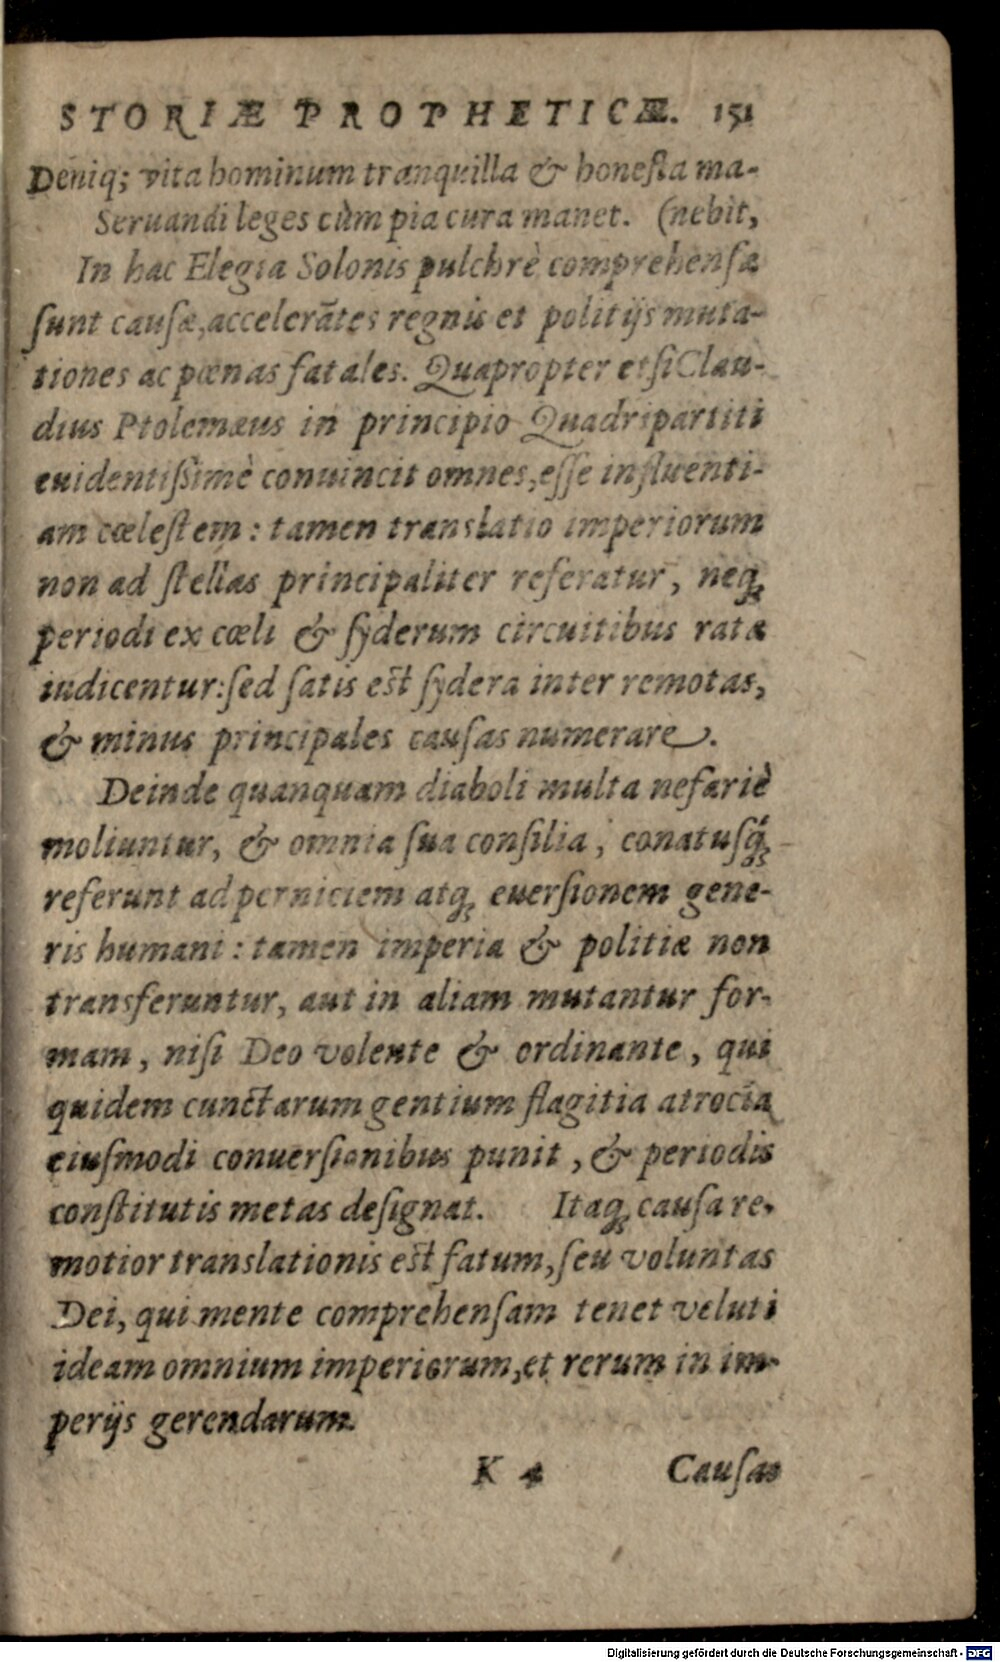 STORIÆ PROPHETICÆ. 151
Deniq; vita hominum tranquilla & honeſta ma-
Seruandi leges cùm pia cura manet. (nebit,
In hac Elegia Solonis pulchrè comprehenſæ
ſunt cauſæ, accelerātes regnis et politijs muta-
tiones ac pœnas fatales. Quapropter etſi Clau-
dius Ptolemæus in principio Quadripartiti
euidentiſsimè conuincit omnes, eſſe influenti-
am cœleſtem: tamen translatio imperiorum
non ad ſtellas principaliter referatur, neq;
periodi ex cœli & ſyderum circuitibus ratæ
iudicentur: ſed ſatis eſt ſydera inter remotas,
& minus principales cauſas numerare.
Deinde quanquam diaboli multa nefariè
moliuntur, & omnia ſua conſilia, conatuſq́;
referunt ad perniciem atq; euerſionem gene-
ris humani: tamen imperia & politiæ non
transferuntur, aut in aliam mutantur for-
mam, niſi Deo volente & ordinante, qui
quidem cunctarum gentium flagitia atrocia
eiuſmodi conuerſionibus punit, & periodis
conſtitutis metas deſignat. Itaq; cauſa re-
motior translationis eſt fatum, ſeu voluntas
Dei, qui mente comprehenſam tenet veluti
ideam omnium imperiorum, et rerum in im-
perijs gerendarum.
K 4 Cauſas
Digitalisierung gefördert durch die Deutsche Forschungsgemeinschaft - DFG